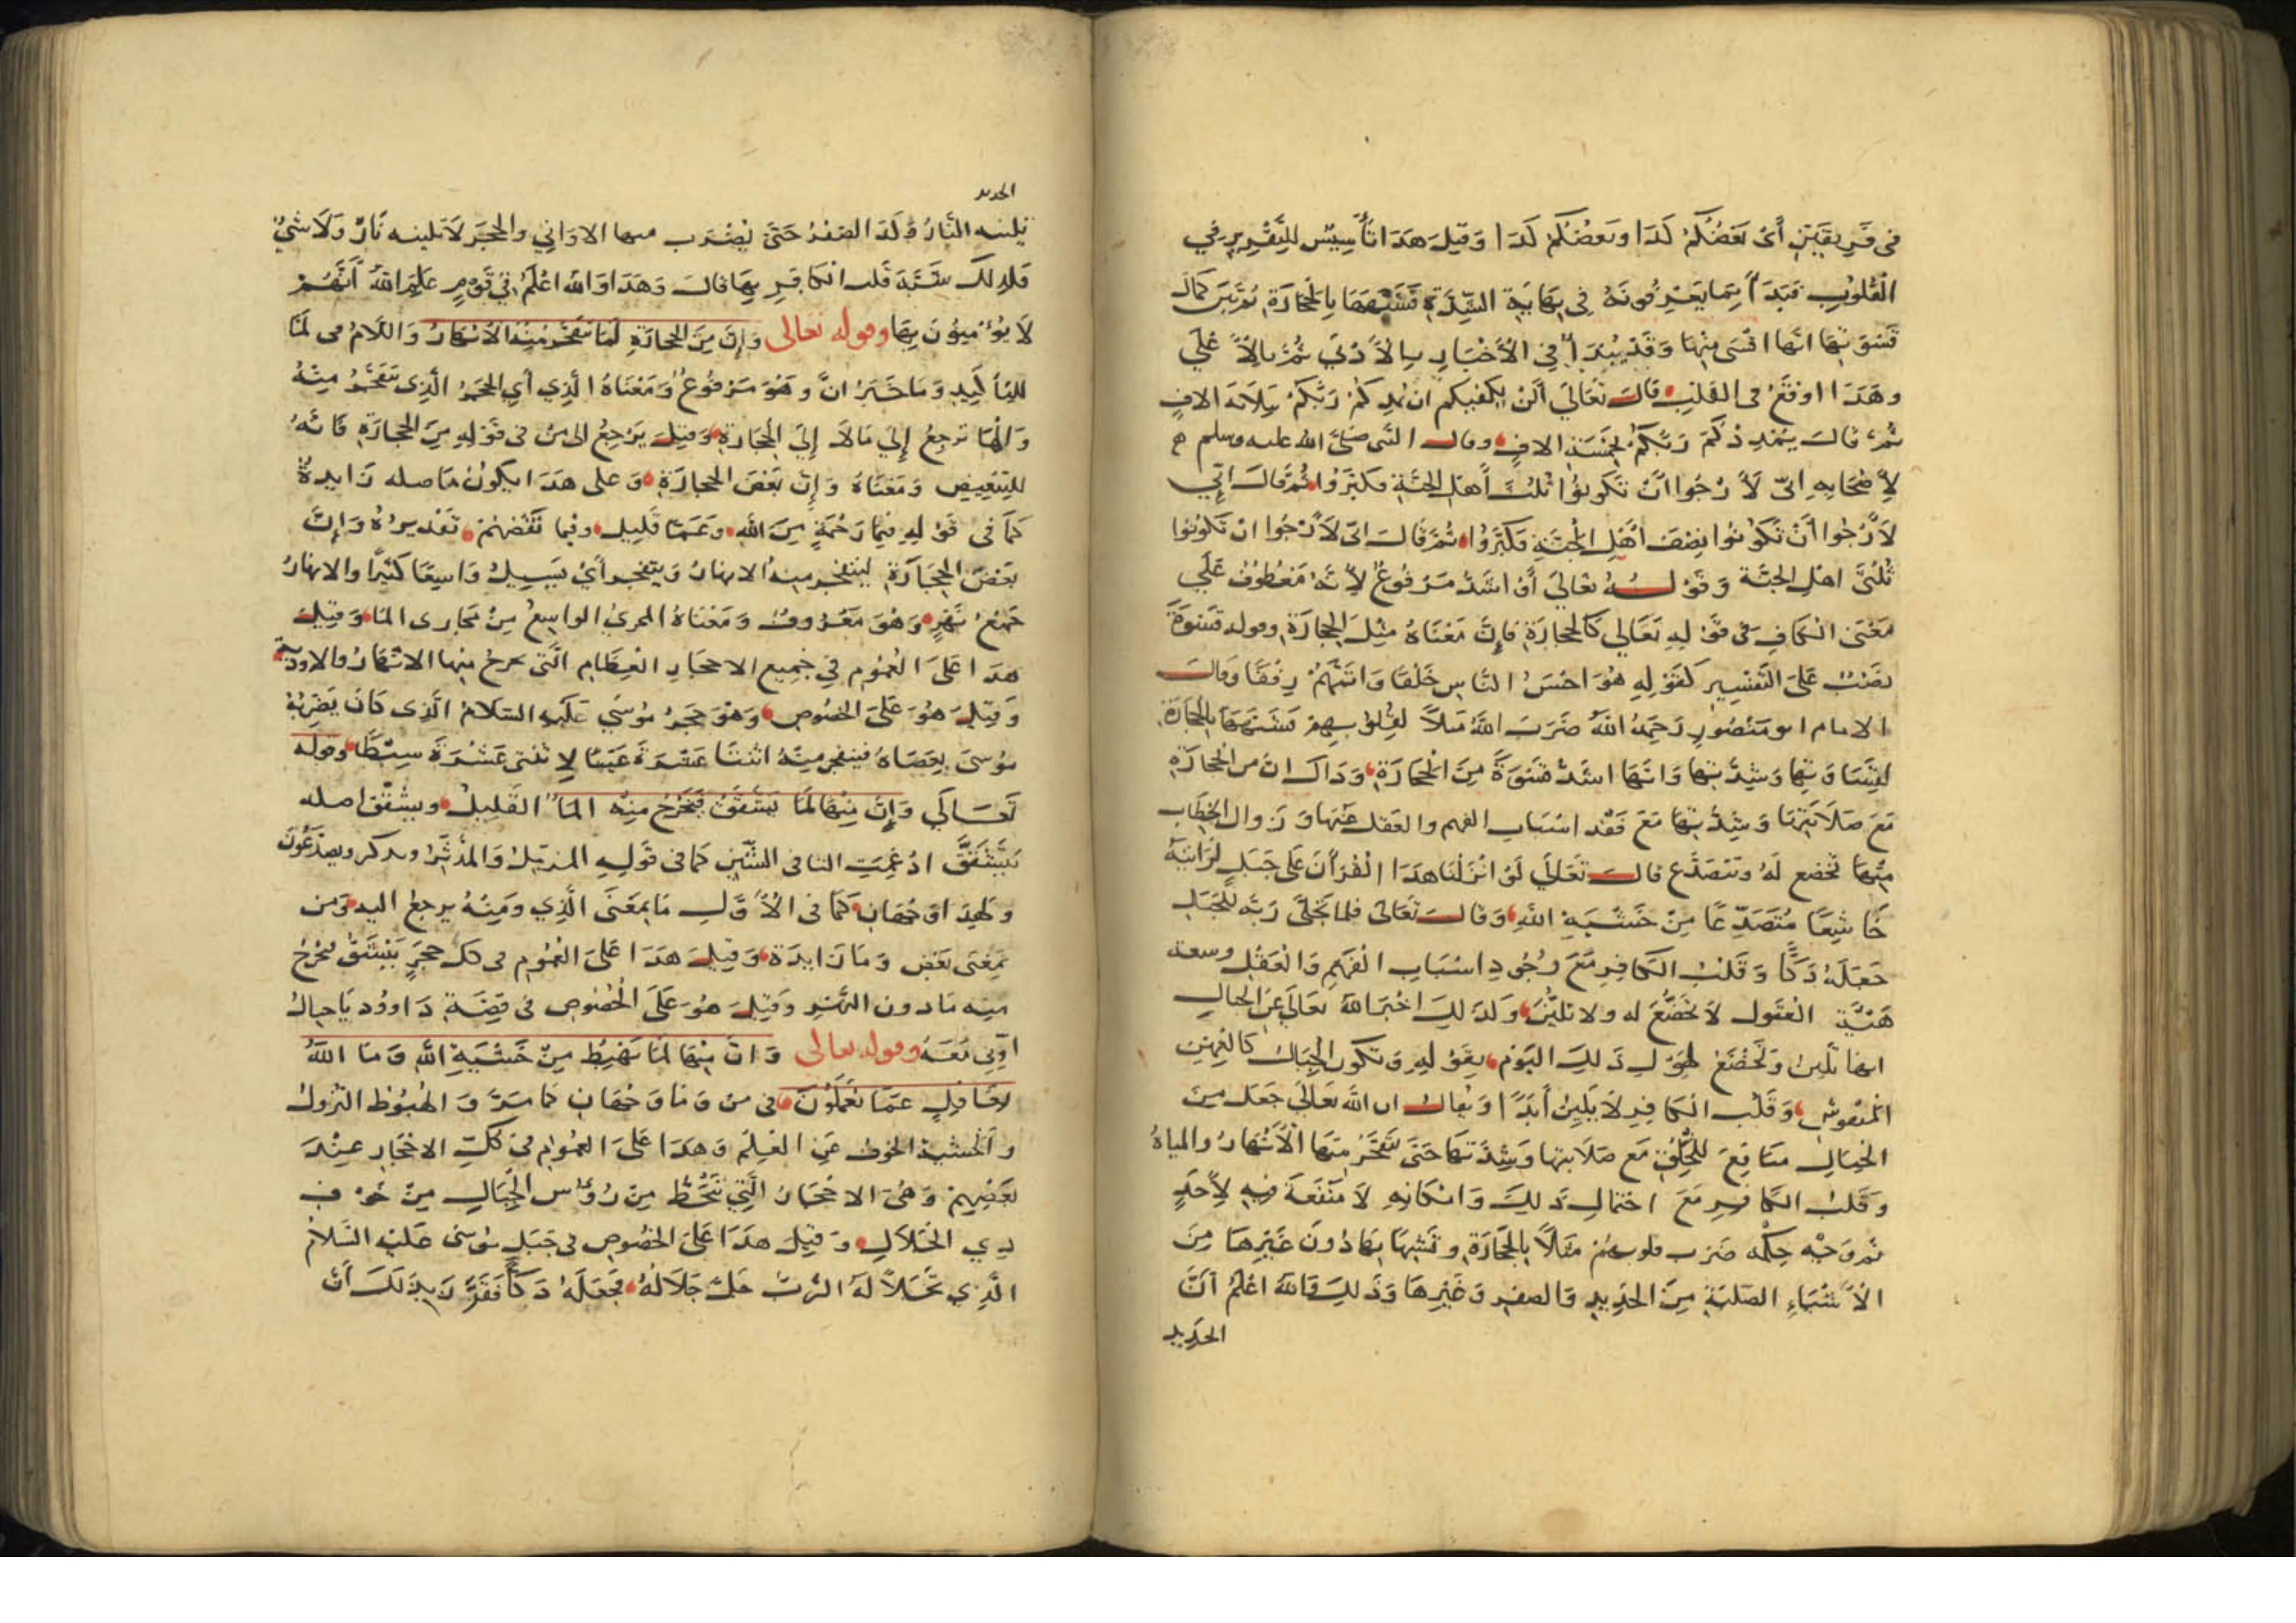 فى فريقين أى بعضكم كذا وبعضكم كذا وقيل هذا تأسيس للتقرير في
القلوب فبدأ بما يعرفونه في نهاية الشدة فشبهها بالحجارة ثم بين كمال
قسوتها انها اقسى منها وقد يبدأ في الأخبار بالأدنى ثم بالأعلي
وهذا اوقع فى القلب قال تعالي ألن يكفيكم ان يمدكم ربكم بثلاثة الاف
ثم قال يمددكم ربكم بخمسة الاف وقال النبى صلى الله عليه وسلم
لأصحابه انى لأرجوا أن تكونوا ثلث أهل الجنة فكبروا ثم قال إني
لأرجوا أن تكونوا نصف أهل الجنة فكبروا ثم قال انى لأرجوا ان تكونوا
ثلثى اهل الجنة وقوله تعالى أو اشد مرفوع لأنه معطوف علي
معنى الكاف فى قوله تعالي كالحجارة فإن معناه مثل الحجارة وقوله قسوة
نصب على التفسير كقوله هو احسن الناس خلقا واتمهم رفقا وقال
الامام ابو منصور رحمه الله ضرب الله مثلا لقلوبهم فشبهها بالحجارة
لقساوتها وشدتها وانها اشد قسوة من الحجارة وذاك ان من الحجارة
مع صلابتها وشدتها مع فقد اسباب الفهم والعقل عنها وزوال الخطاب
منها تخضع له وتتصدع قال تعالي لو انزلنا هذا القرآن على جبل لرايته
خاشعا متصدعا من خشية الله وقال تعالى فلما تجلى ربه للجبل
جعله دكا وقلب الكافر مع وجود اسباب الفهم والعقل وسعة
هيئة العقول لا تخضع له ولا تلين ولذلك اخبر الله تعالى عن الجبال
انها تلين وتخضع لهول ذلك اليوم بقوله وتكون الجبال كالعهن
المنفوش وقلب الكافر لا يلين أبدا ويقال ان الله تعالى جعل من
الجبال منافع للخلق مع صلابتها وشدتها حتى تتفجر منها الأنهار والمياه
وقلب الكافر مع احتمال ذلك وامكانه لا منفعة فيه لأحد
ثم وجه حكمه ضرب قلوبهم مثلا بالحجارة وتشبهها بها دون غيرها من
الأشياء الصلبة من الحديد والصفر وغيرها وذلك والله اعلم أن
الحديد
الحديد
تلينه النار وكذا الصفر حتى يضرب منها الاواني والحجر لا تلينه نار ولا شئ
فلذلك شبه قلب الكافر بها قال وهذا والله اعلم في قوم علم الله أنهم
لا يؤمنون بها وقوله تعالى وإن من الحجارة لما يتفجر منه الأنهار واللام فى لما
للتأكيد وما خبر ان وهو مرفوع ومعناه الذي أي الحجر الذى يتفجر منه
والها ترجع إلي ما لا إلي الحجارة وقيل يرجع الى من فى قوله من الحجارة فانه
للتبعيض ومعناه وإن بعض الحجارة وعلى هذا يكون ما صله زايدة
كما فى قوله فبما رحمة من الله وعما قليل وفبما نقضهم تقديره وإن
بعض الحجارة ليتفجر منه الانهار ويتفجر أي يسيل واسعا كثيرا والانهار
جمع نهر وهو معروف ومعناه المجرى الواسع من مجارى الما وقيل
هذا على العموم في جميع الاحجار العظام التى تخرج منها الانهار والاودية
وقيل هو على الخصوص وهو حجر موسي عليه السلام الذى كان يضربه
موسى بعصاه فينفجر منه اثنتا عشرة عينا لاثنتى عشرة سبطا وقوله
تعالي وإن منها لما يشقق فيخرج منه الما القليل ويشقق اصله
يتشقق ادغمت التا فى الشين كما فى قوله المزمل والمدثر ويذكر ويصدعون
ولهذا وجهان كما فى الأول ما بمعنى الذي ومنه يرجع اليه ومن
بمعنى بعض وما زايدة وقيل هذا على العموم فى كل حجر ينشق يخرج
منه ما دون النهر وقيل هو على الخصوص فى قصة داوود يا جبال
اوبي معه وقوله تعالى وان منها لما يهبط من خشية الله وما الله
بغافل عما تعملون فى من وما وجهان كما مر والهبوط النزول
والخشية الخوف عن العلم وهذا على العموم فى كل الاحجار عند
بعضهم وهى الاحجار التي تنحط من رؤس الجبال من خوف
ذي الجلال وقيل هذا على الخصوص فى جبل موسى عليه السلام
الذي تجلا له الرب جل جلاله فجعله دكا فقرن بذلك أن